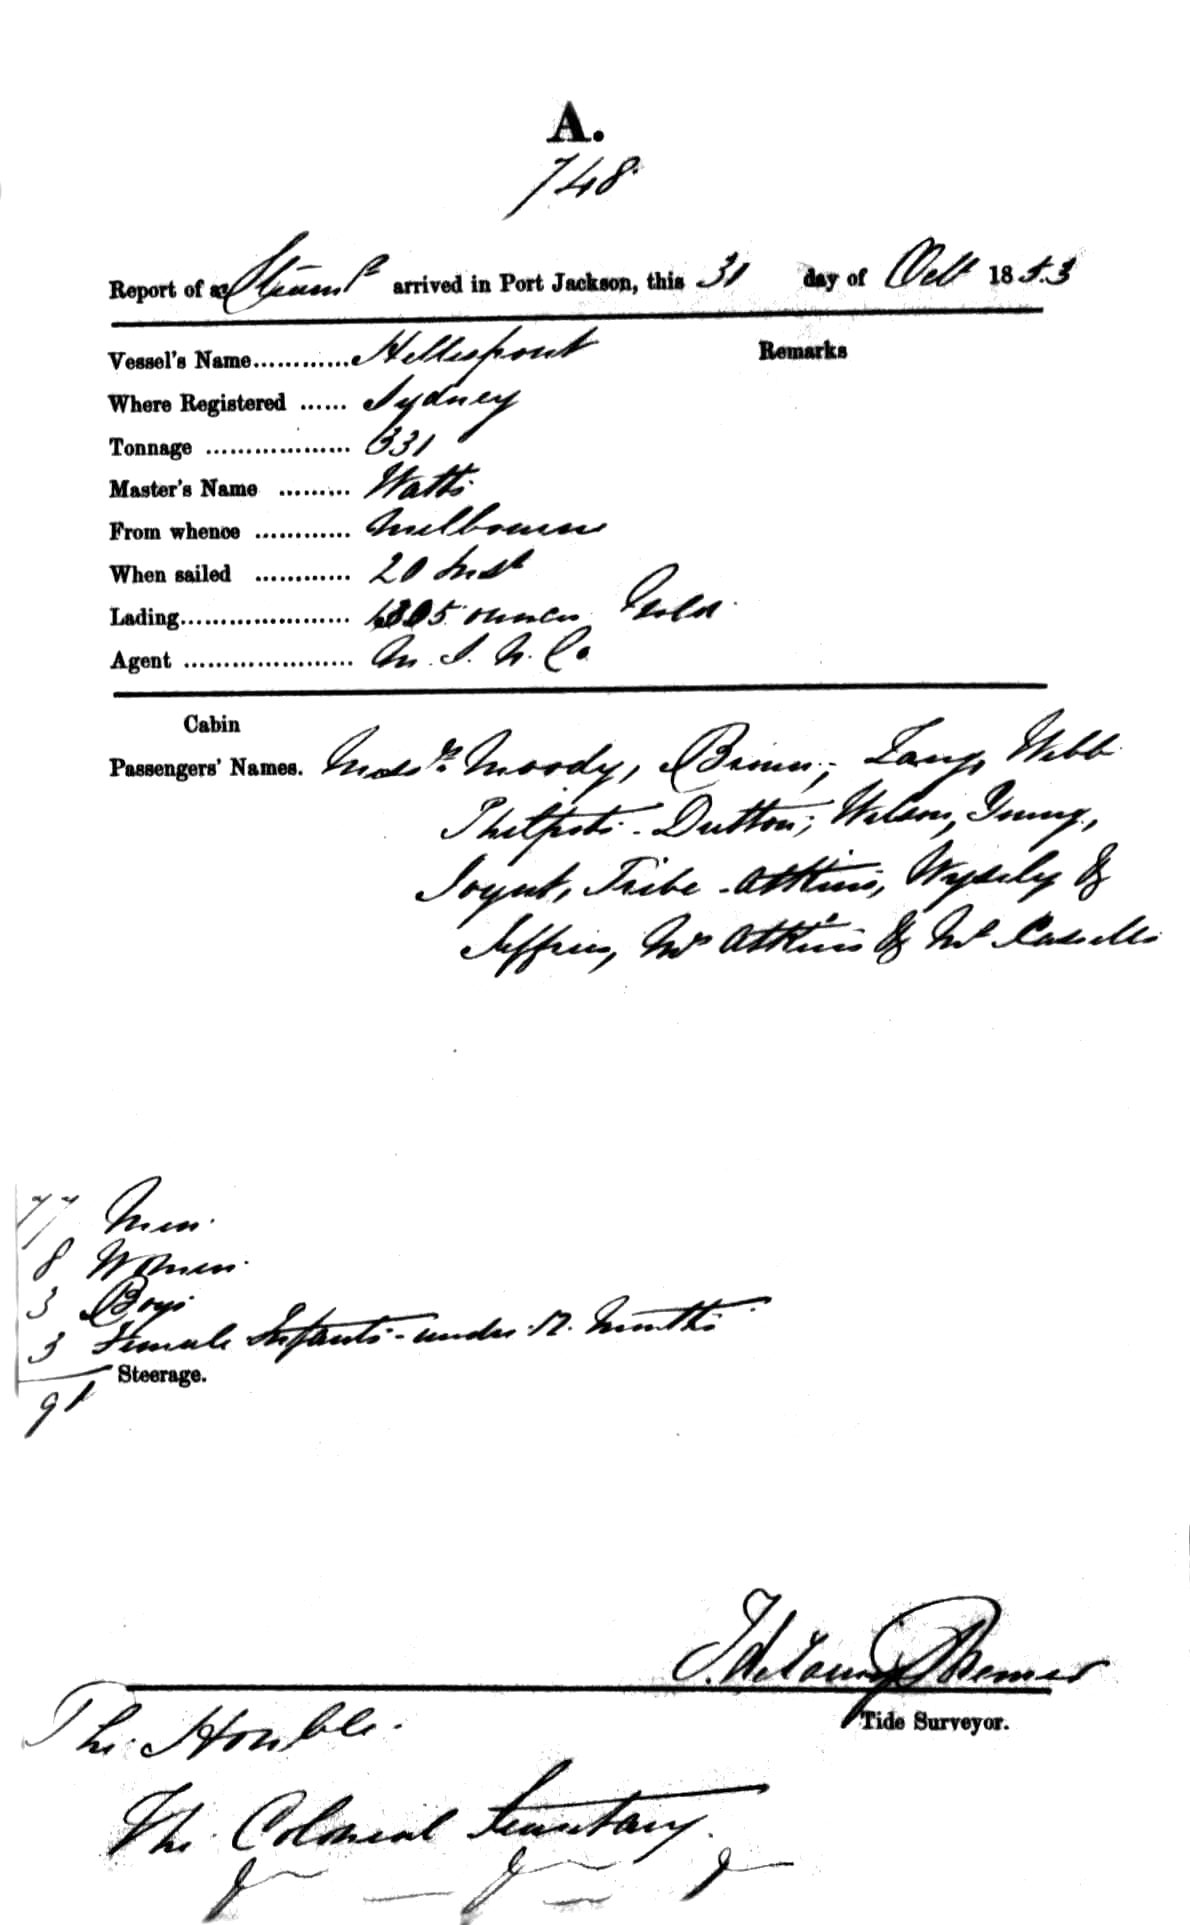 A.
748
Report of a Steam Sp arrived in Port Jackson, this 31 day of Octr 1853
Vessel's Name............ Hellespont Remarks
Where Registered ...... Sydney
Tonnage .................. 331
Master's Name ......... Watts
From whence ............ Melbourne
When sailed ............ 20 Inst
Lading..................... ounces Gold
Agent ..................... M. S. N. Co
Cabin
Passengers' Names. Messrs Moody, Brown, Lang, Webb
Philpots - Dutton, Wilson, Young,
Joynt, Tribe - Atkins, &
Jeffries, Mrs Atkins & Mr Cassells
77 Men.
8 Women.
3 Boys
3 Female Infants - under 12 Months
Steerage.
91
Tide Surveyor.
The Honble.
The Colonial Secretary.